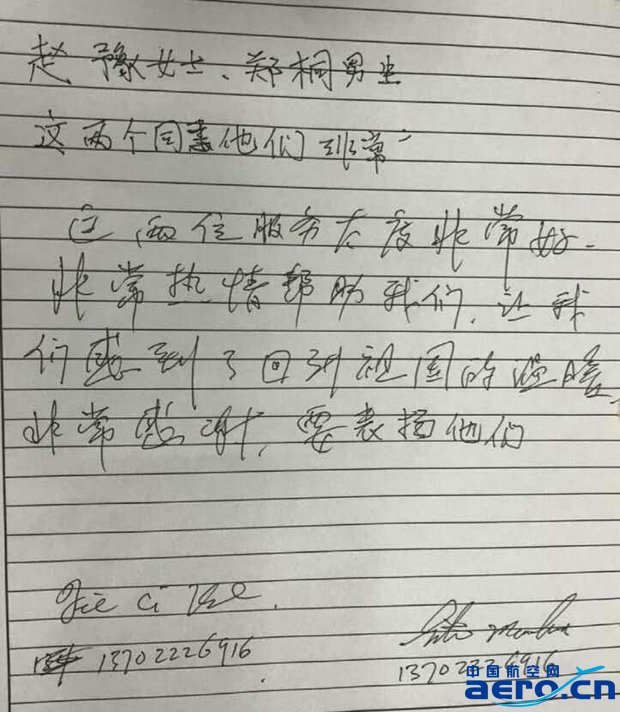 赵豫女士、郑桐男士
这两个同志他们非常
这两位服务态度非常好.
非常热情帮助我们,让我
们感到了回到祖国的温暖,
非常感谢,要表扬他们
Jie Ci
13702226916
13702226916
中国航空网
aero.cn